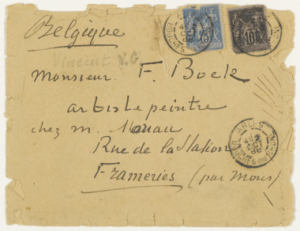 Belgique
Vincent V. G
Monsieur F. Bock
artiste peintre
chez m. Monau
Rue de la Station
Frameries (par Mons)
10